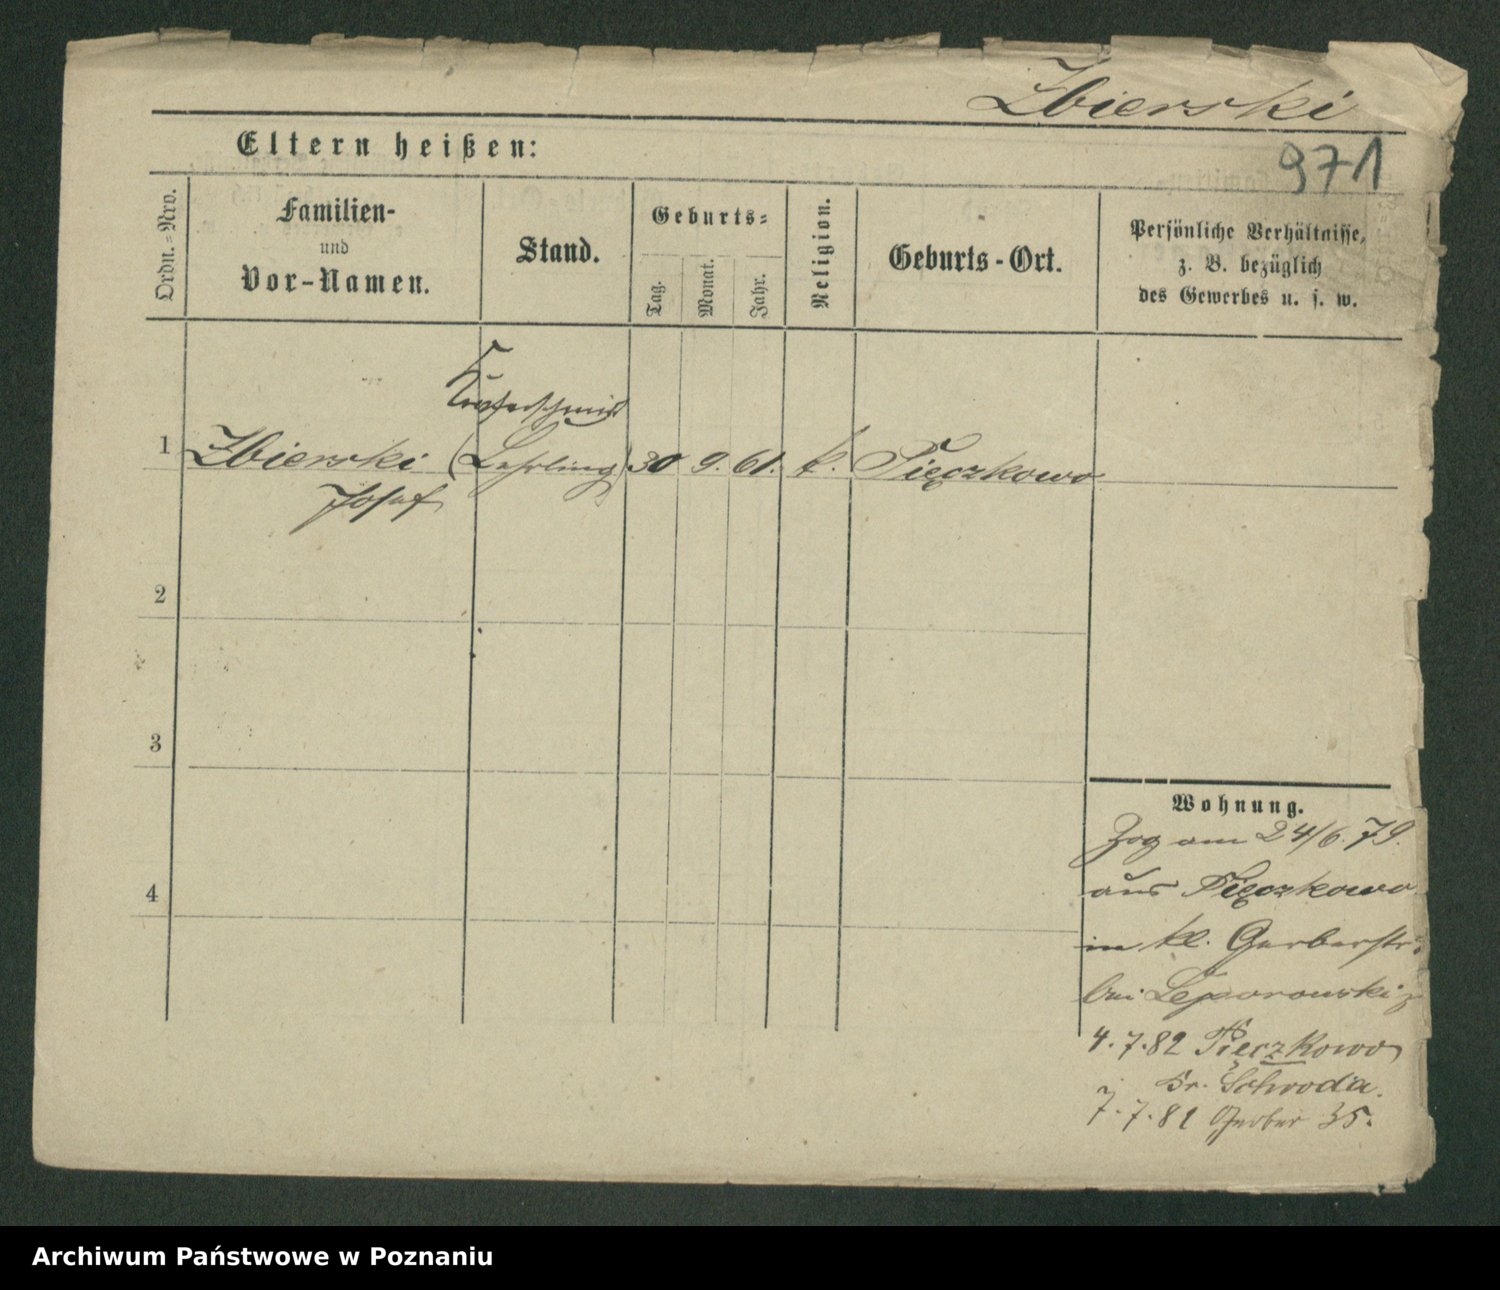 Zbierski
971
Eltern heißen:
Ordn.=Nro.
Familien-
und
Vor-Namen.
Stand.
Geburts=
Tag.
Monat.
Jahr.
Religion.
Geburts-Ort.
Persönliche Verhältnisse,
z. B. bezüglich
des Gewerbes u. s. w.
Kupferschmid
1 Zbierski (Lehrling) 30 9. 61. k. Pięczkowo
Josef
2
3
4
Wohnung.
Zog am 24/6. 79.
aus Pięczkowo
in kl. Gerberstr:
bei Leporowski
4.7.82 Pięczkowo
Kr. Schroda.
7.7.82 Gerber 35.
Archiwum Państwowe w Poznaniu